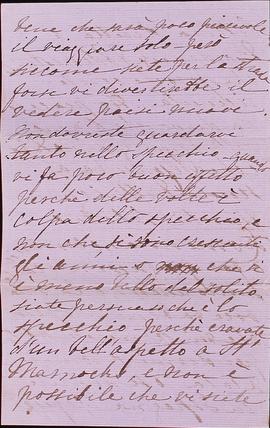 bene che sarà poco piacevole
il viaggiare solo però
siccome siete per la
forse vi divertirebbe il
vedere paesi nuovi.
Non dovreste guardarvi
tanto nello specchio
vi fa poco buon
perchè delle volte è
colpa dello specchio e
non che si sono
gli anni o che vi
è meno bello del solito
siate persuaso è lo
specchio perchè eravate
d'un bell'aspetto a St
e non è
possibile che vi siete